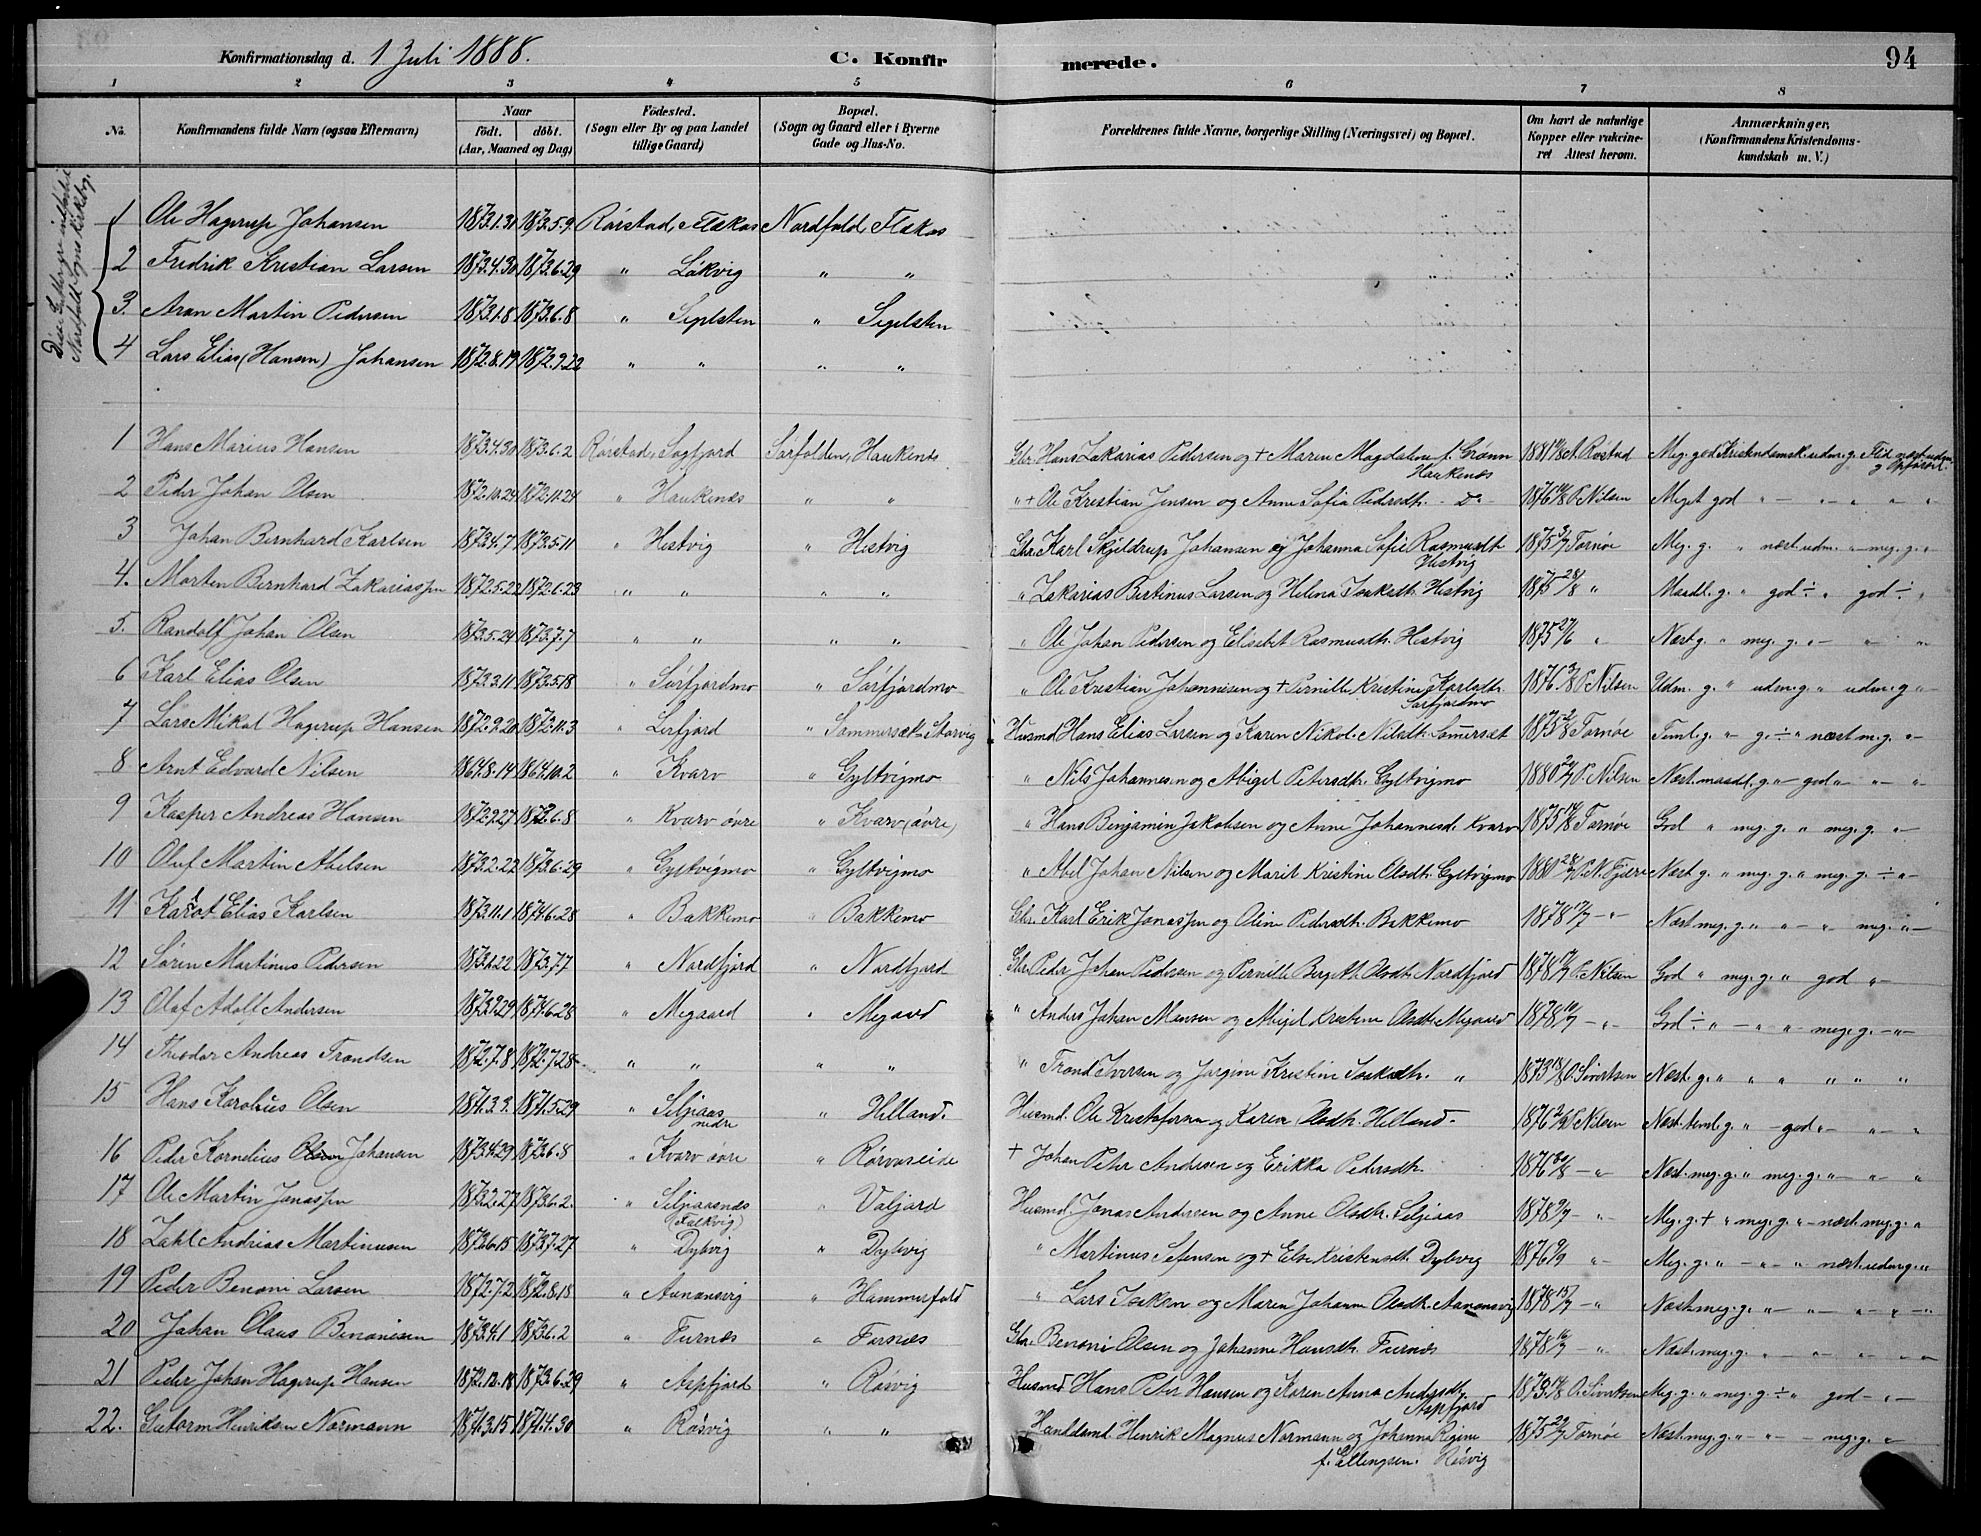 Konfirmationsdag d. 1 Juli 1888. C. Konfirmerede. 94
1 2 3 4 5 6 7 8
No. Konfirmandens fulde Navn (ogsaa Efternavn) Naar födt. döbt. (Aar, Maaned og Dag) Födested. (Sogn eller By og paa Landet tillige Gaard) Bopæl. (Sogn og Gaard eller i Byerne Gade og Hus-No. Forældrenes fulde Navne, borgerlige Stilling (Næringsvei) og Bopæl. Om havt de naturlige Kopper eller vakcineret Attest herom. Anmærkninger, (Konfirmandens Kristendomskundskab m. V.)
1 Ole Hagerup Johansen 1873.1.31 1873.5.9 Rörstad, Flakas Nordfold, Flakas
2 Fredrik Kristian Larsen 1873.4.30 1873.6.29 " Løkvig " "
3. Aron Martin Pedersen 1873.1.8 1873.6.8 " Sigelsten " Sigelsten
4 Lars Elias (Hansen) Johansen 1872.8.19 1872.9.22 " " " "
1 Hans Marius Hansen 1873.4.30 1873.6.2 Rörstad, Sagfjord Sörfolden, Haukenes Gbr. Hans Zakarias Pedersen og + Maren Magdalene f. Grønn Haukenes 1881 A. Röstad Meg. god Kristendomsk. udm. g. Flid næst udm. g. Opførsel.
2 Peder Johan Olsen 1872.10.24 1872.11.24 " Haukenæs " " " + Ole Kristian Jensen og Anne Sofia Pedersdtr. Do 1876 P. Nilsen Meget god " "
3 Johan Bernhard Karlsen 1873.4.7 1873.5.11 " Hestvig " Hestvig Gbr. Karl Skjeldrup Johansen og Johanna Sofie Rasmusdtr. Hestvig 1875 Tornøe Meg. g. " næst udm. " meg. g. "
4. Morten Bernhard Zakariassen 1872.5.22 1872.6.23 " " " " " Zakarias Bertinus Larsen og Helena Isaksdtr. Hestvig 1875 " Maadl. g. " god ÷ " god ÷ "
5. Randolf Johan Olsen 1873.5.24 1873.7.7 " " " " " Ole Johan Pedersen og Elisabet Rasmusdtr. Hestvig 1875 " Næst g. " meg. g. "
6 Karl Elias Olsen 1873.3.11 1873.5.18 " Sörfjordmo " Sörfjordmo " Ole Kristian Johannesen og + Pernille Kristine Karlsdtr. Sörfjordmo 1876 P. Nilsen Udm. g. " udm. g " udm. g "
7 Lars Mikal Hagerup Hansen 1872.9.20 1872.11.3 " Leifjord " Sommersæt Storvig Husmd. Hans Elias Larsen og Karen Nikol. Nilsdtr. Somersæt 1875 Tornøe Teml. g. " g. ÷ " næst m. g. "
8 Arnt Edvard Nilsen 1864.8.14 1864.10.2 " Kvarv " Gyltvigmo " Nils Johannesen og Abigel Petersdtr. Gyltvigmo 1880 P. Nilsen Næst maadl. g. " god "
9 Kasper Andreas Hansen 1872.9.27 1872.6.8 " Kvarv övre " Kvarv (övre) " Hans Benjamin Jakobsen og Anne Johannesd. Kvarv 1875 Tornøe God " meg. g. " meg. g. "
10 Oluf Martin Abelsen 1873.2.22 1873.6.29 " Gyltvigmo " Gyltvigmo " Abel Johan Nilsen og Marit Kristine Olsdtr. Gyltvigmo P. N. Fjære Næst g. " meg. g. " meg. g. ÷ "
11 Elias Karlsen 1873.11.1 1874.6.28 " Bakkemo " Bakkemo Gbr. Karl Erik Jonassen og Oline Pedersdtr. Bakkemo 1878 " Næst meg. g. " " " meg. "
12 Sören Martinus Pedersen 1873.1.22 1873.7.7 " Nordfjord " Nordfjord Gbr. Peder Johan Pedersen og Pernille Olsdtr. Nordfjord 1878 P. Nilsen God " meg. g. " god "
13 Olaf Adolf Andersen 1874.6.28 " Megaard " Megaard " Anders Johan Monsen og Abigel Kristine Olsdtr. Megaard 1878 " God ÷ " " " meg. g. "
14 Theodor Andreas Trondsen 1872.7.8 1872.7.28 " " " " " Trond Iversen og Jorgine Kristine Isaksdtr. " 1873 O. Sivertsen Næst g. " " " " " "
15 Hans Karolius Olsen 1871.3.3. 1871.5.29 " Seljeaas nedre " Helland. Husmd. Ole Kristofersen og Karen Olsdtr. Helland 1876 P. Nilsen Næst teml. g. " god "
16 Peder Kornelius Johansen 1873.4.29 1873.6.8 " Kvarv övre " Rörvaseide + Johan Peter Andersen og Erikka Pedersdtr. 1876 " Næst meg. g. " meg. g. "
17 Ole Martin Jonassen 1873.2.27 1873.6.2. " Seljeaasnæs (Falkvig) " Valjord Husmd. Jonas Andersen og Anne Olsdtr. Seljeaas 1878 " Meg. g. + " meg. g. " næst meg. g. "
18 Zahl Andreas Martinusen 1873.6.15 1873.7.27 " Dybvig " Dybvig " Martinus Setensen og + Else Kristensdtr. Dybvig 1876 " Meg. g. " " " næst udm. g. "
19 Peder Benoni Larsen 1872.7.2 1872.8.18 " Aanansvig " Hammerfald " Lars Isaksen og Maren Johanne Olsdtr. Aanonsvig 1878 " Næst meg. g. "
20 Johan Olaus Benonisen 1873.4.1 1873.6.2 " Furnes " Furnæs Gbr. Benoni Olsen og Johanne Hansdtr. Furnes 1878 " Næst meg. g. "
21 Peder Johan Hagerup Hansen 1872.12.18 1873.6.29 " Aspfjord " Rösvig Husmd. Hans Peter Hansen og Karen Anna Andersdtr. Aspfjord 1873 O. Sivertsen Meg. g. " meg. g. ÷ " god "
22. Guttorm Henriksen Normann 1871.3.15 1871.4.30 " Rösvig " " Handelsmd. Henrik Magnus Normann og Johanna Regine f. Ellingsen. Rösvig 1875 Tornøe Næst meg. g. " meg. g. "